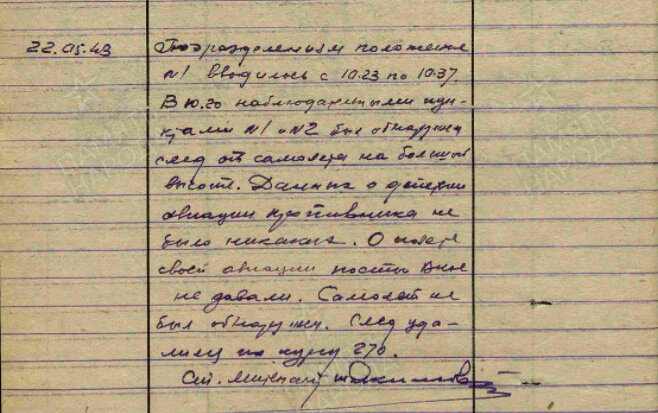 22.05.43 Подразделениям положение
N1 вводилось с 10.23 по 10.37.
В 10.20 наблюдательными пун-
ктами N1 и N2 был обнаружен
след от самолета на большой
высоте. Данных о
авиации противника не
было никаких. О
своей авиации посты ВНОС
не давали. Самолет не
был обнаружен. След уда-
лился по курсу 270.
Ст. лейтенант
ПАМЯТЬ
НАРОДА